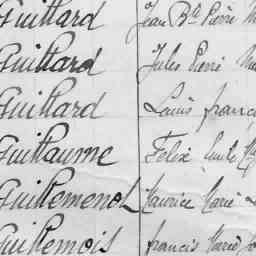 Guillard Jean Bte Pierre
Guillard Jules Pierre
Guillard Louis franc
Guillaume Felix Emile
Guillemenot Maurice Marie
Guillemois francis Marie